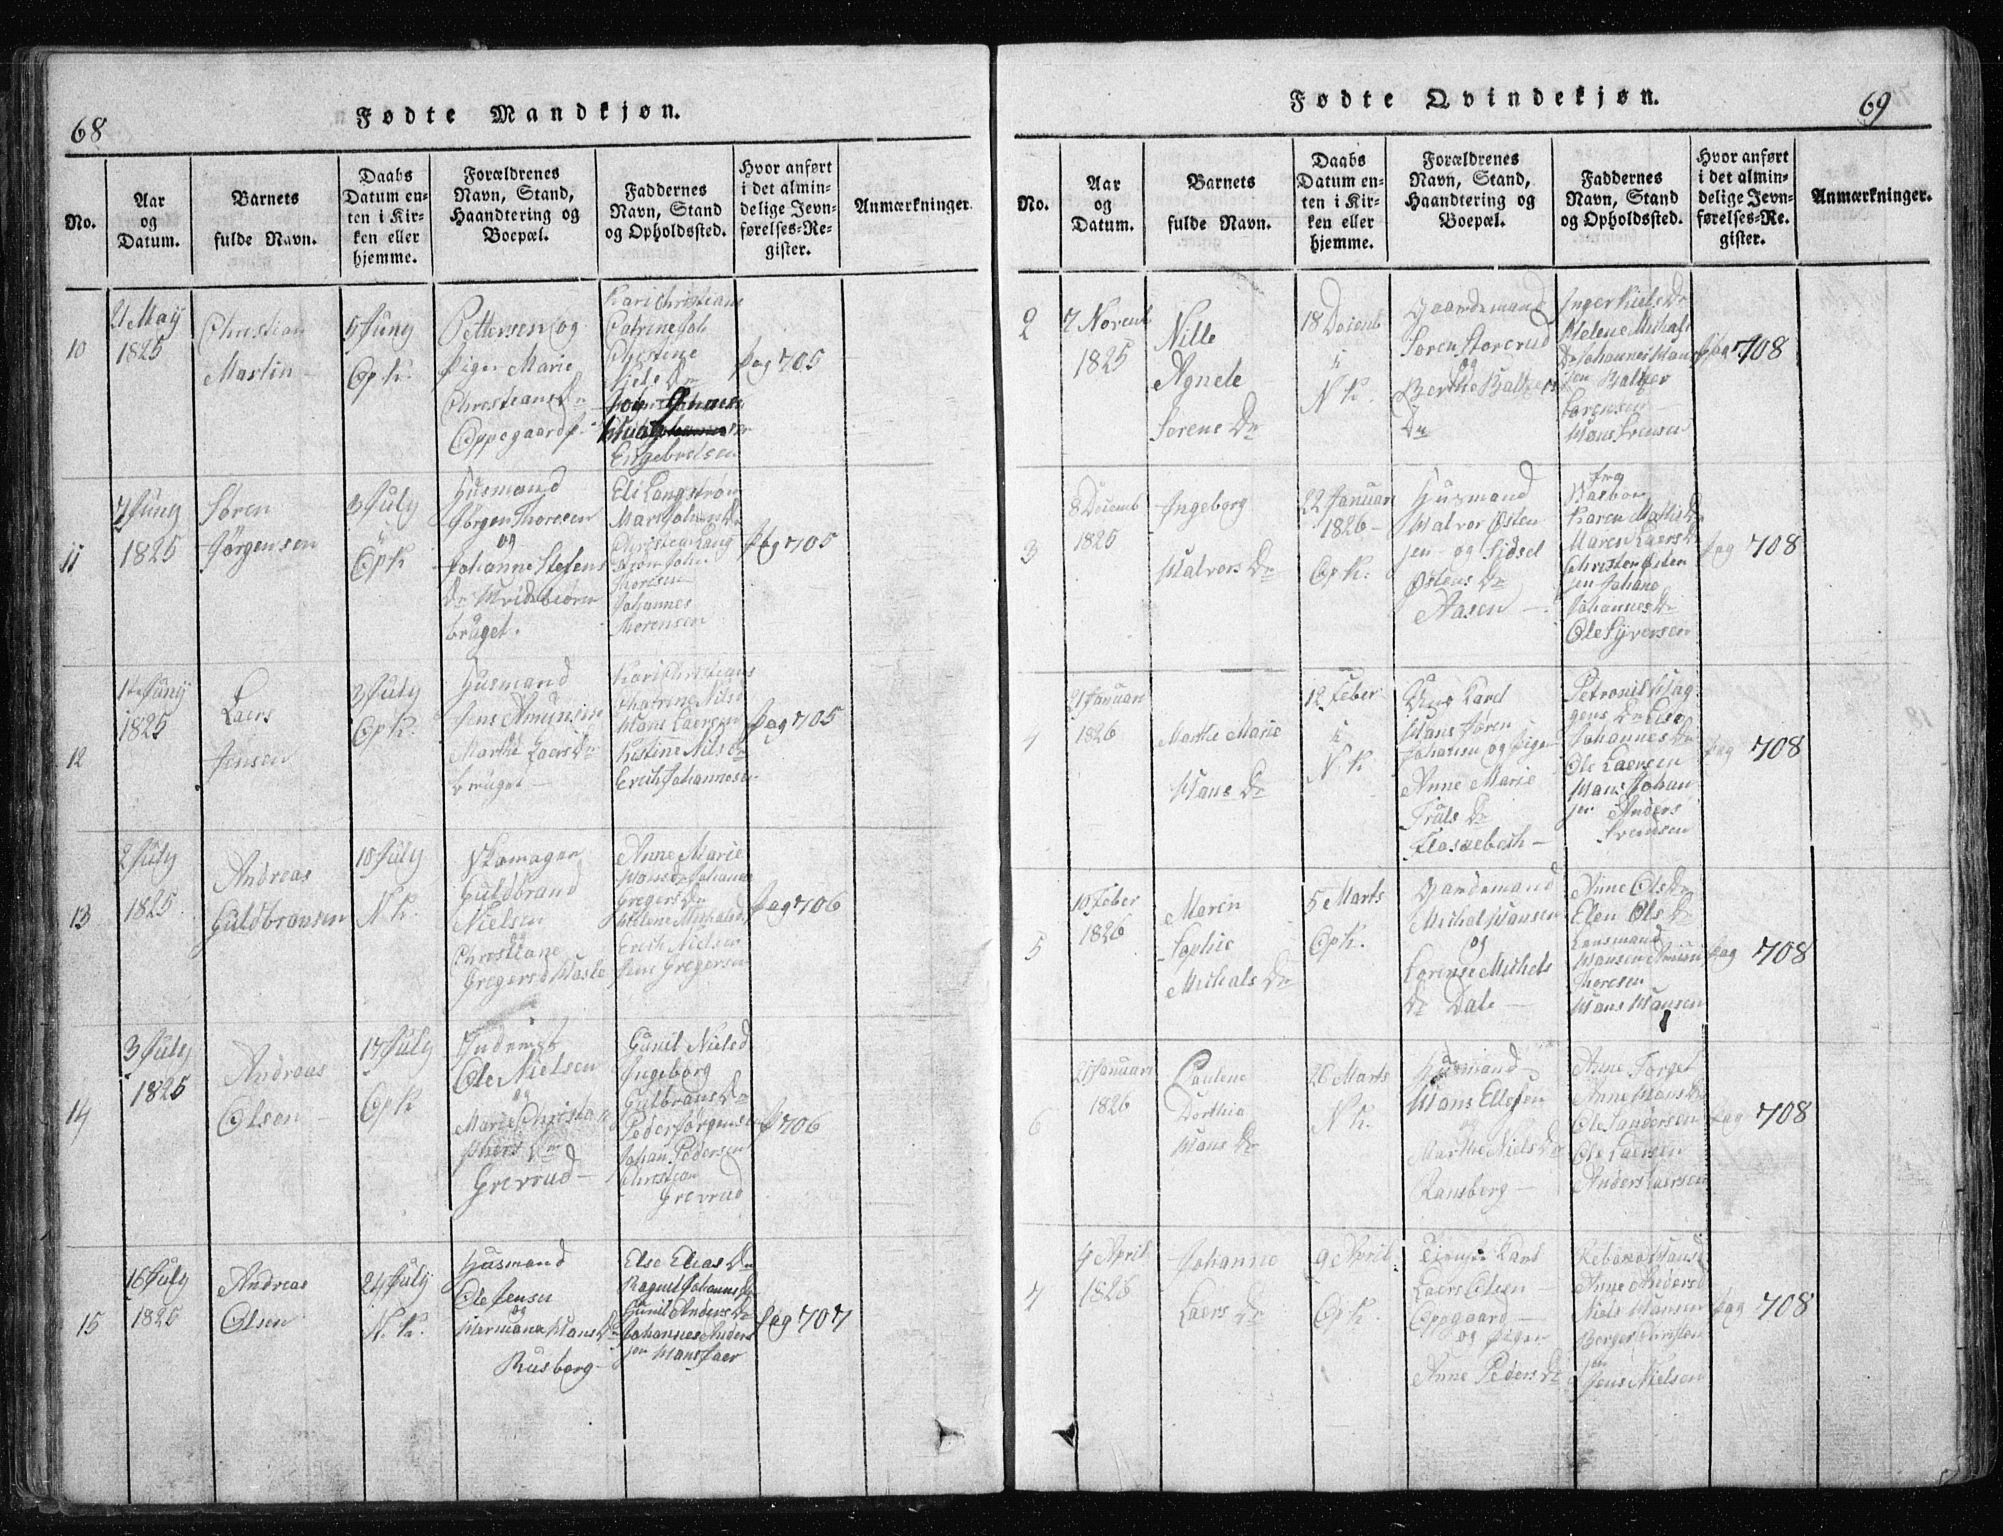 68
Fødte Mandkjøn.
No.
Aar
og
Datum.
Barnets
fulde Navn.
Daabs
Datum en-
ten i Kir-
ken eller
hjemme.
Forældrenes
Navn, Stand,
Haandtering og
Boepæl.
Faddernes
Navn, Stand
og Opholdssted.
Hvor anført
i det almin-
delige Jevn-
førelses-Re-
gister.
Anmærkninger.
10
21 May
1825
Christian
Martin
5 Juny
Op K.
Pettersen og
Piger Marie
Christians Dr
Oppegaard
Kari Christians
Catrine
Engebretsen
Pag 705
11
7 Juny
1825
Søren
Jørgensen
3 July
Op K
Husmand
Jørgen Thoresen
og
Johanne Stefens
Dr
bruget.
Eli Langstrøm
Mari Johans Dr
Christian Lang
strøm
Thoresen
Johannes
Thorensen
Pag 705
12
14 Juny
1825
Laers
Jensen
3 July
Op K.
Husmand
Jens Amunsen
og
Marthe Laers Dr
bruget
Kari Christians
Chatrine Nils
Hans Laersen
Kistine Nils Dr
Erich Johannesen
Pag 705
13
2 July
1825
Andreas
Guldbransen
10 July
N K.
Skomager
Guldbrand
Nielsen
og
Christiane
Gregers D
Anne Marie
Gregers Dr
Helene Michels D
Erich Nielsen
Jens Gregersen
Pag 706
14
3 July
1825
Andreas
Olsen
17 July
Op K
Inderst
Ole Nielsen
og
Marie Christo
phers Dr
Grevrud
Gunil Niels D
Ingeborg
Gulbrans Dr
Peder Jørgensen
Johan Pedersen
Christian
Grevrud
P 706
15
16 July
1825
Andreas
Olsen
24 July
N. K.
Husmand
Ole Jensen
og
Hermana Hans Dr
Rusberg
Else Elias Dr
Ragnil Johannes Dr
Gunil Anders Dr
Johannes Anders
sen
Pag 707
Fødte Qvindekjøn.
69
No.
Aar
og
Datum.
Barnets
fulde Navn.
Daabs
Datum en-
ten i Kir-
ken eller
hjemme.
Forældrenes
Navn, Stand,
Haandtering og
Boepæl.
Faddernes
Navn, Stand
og Opholdssted.
Hvor anført
i det almin-
delige Jevn-
førelses-Re-
gister.
Anmærkninger.
2
7 Novemb
1825
Nille
Agnete
Sørens Dr
18 Decemb
i
N K.
Gaardemand
Søren Storerud
og
Berthe Baltzers
Dr
Inger Niels Dr
Helene Michals
Dr Johannes Han
sen Baltzer
Sørensen
Hans Svensen
Pag 708
3
8 Decemb
1825
Ingeborg
Halvors Dr
22 Januari
1826
Op K.
Husmand
Halvor Østen
sen og Sidsel
Østens Dr
Aasen
Karen Mathis Dr
Maren Laers Dr
Christen Østen
sen Johane
Johannes Dr
Ole Syversen
Pag 708
4
21 Januari
1826
Marthe Marie
Hans Dr
12 Feber
i
N K.
Unge Karl
Hans Søren
Johansen og Pigen
Anne Marie
Truls Dr
Flaskebeck
Petronil Haa
gens Dr Else
Johannes Dr
Ole Laersen
Hans Johan
sen Anders
Svensen
Pag 708
5
10 Feber
1826
Maren
Sophie
Michals Dr
5 Marts
Op K.
Gaardemand
Michel Hansen
og
Lorense Michels
Dr Dale
Anne Ols Dr
Elen Ols Dr
Lensmand
Hansen Amun
Thoresen
Hans Hansen
Pag 708
6
20 Januari
1826
Pauline
Dorthea
Hans Dr
26 Marts
N K.
Husmand
Hans Ellefsen
og
Marthe Niels Dr
Ransberg
Anne Torget
Anne Hans Dr
Ole Andersen
Ole Laersen
Anders Laersen
Pag 708
7
4 April
1826
Johanne
Laers Dr
9 April
Op K.
Tieneste Karl
Laers Olsen
Oppegaard
og Pigen
Anne Peders Dr
Rebeka Hans D
Anne Anders D
Niels Hansen
Berger Christen
sen
Jens Nielsen
Pag 708